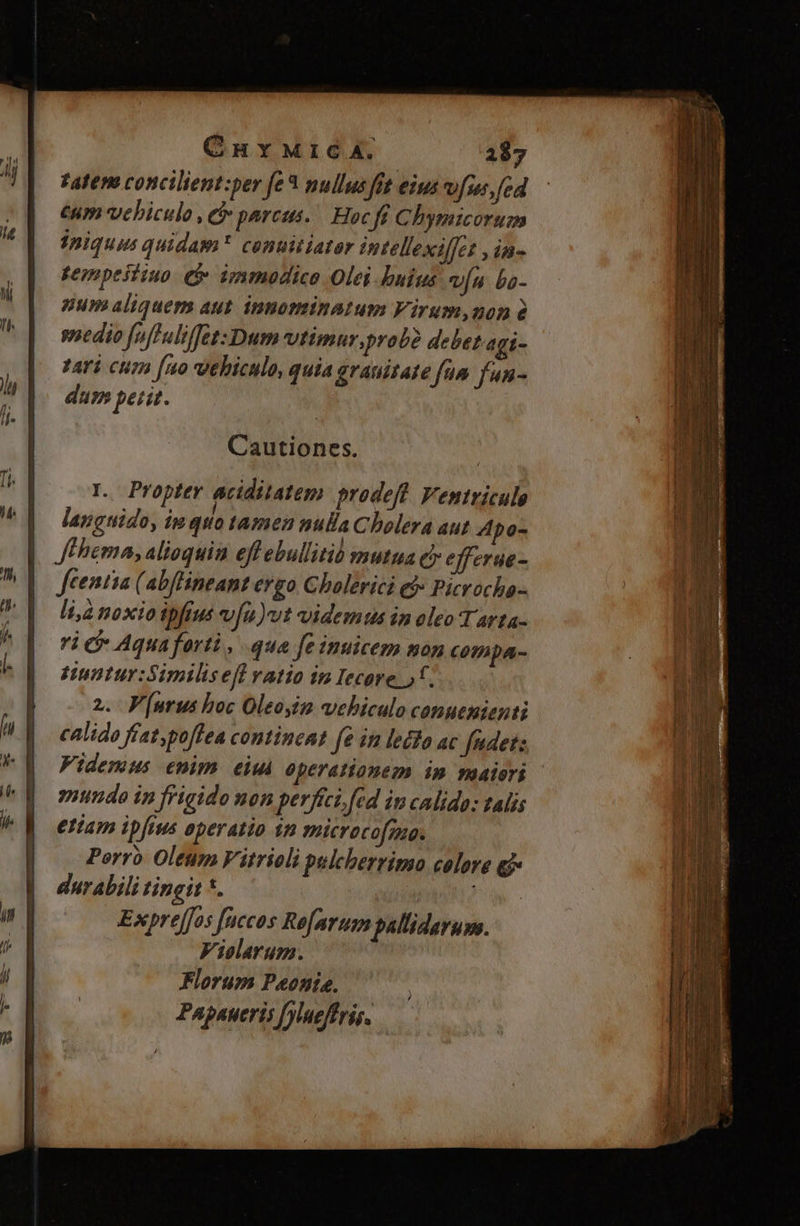 CHYMICA. 287
tatem concilient:per ſe q nullus ſit eius vſus,ſed
cum vehiculo, & parcus. Hoc ſi Chymicorum
iniquus quidam t conuitiator intellexiſſet , in-
tempeſtiuo & immodico Olei huius vſu bo-
num aliquem aut innominatum Virum,non è
medio ſuſtuliſſet:Dum vtimur,probè debet agi-
tari cum ſuo vehiculo, quia grauitate ſua fun-
dum petit.
Cautiones.
1. Propter aciditatem prodeſt Ventriculo
languido, in quo tamen nulla Cholera aut Apo-
ſthema, alioquin eſt ebullitio mutua & efferue-
ſcentia (abſtineant ergo Cholerici & Picrocho-
li,à noxio ipſius vſu)vt videmus in oleo Tarta-
ri & Aqua forti, quæ ſe inuicem non compa-
tiuntur:Similis eſt ratio in Iecore ſ.
2. Vſurus hoc Oleo,in vehiculo conuenienti
calido fiat,poſtea contineat ſe in lecto ac ſudet:
Videmus enim eius operationem in maiori
mundo in frigido non perfici,ſed in calido: talis
etiam ipſius operatio in microcoſmo.
Porrò Oleum Vitrioli pulcherrimo colore &
durabili tingit t.
Expreſſos ſuccos Roſarum pallidarum.
Violarum.
Florum Pæoniæ.
Papaueris ſylueſtris.